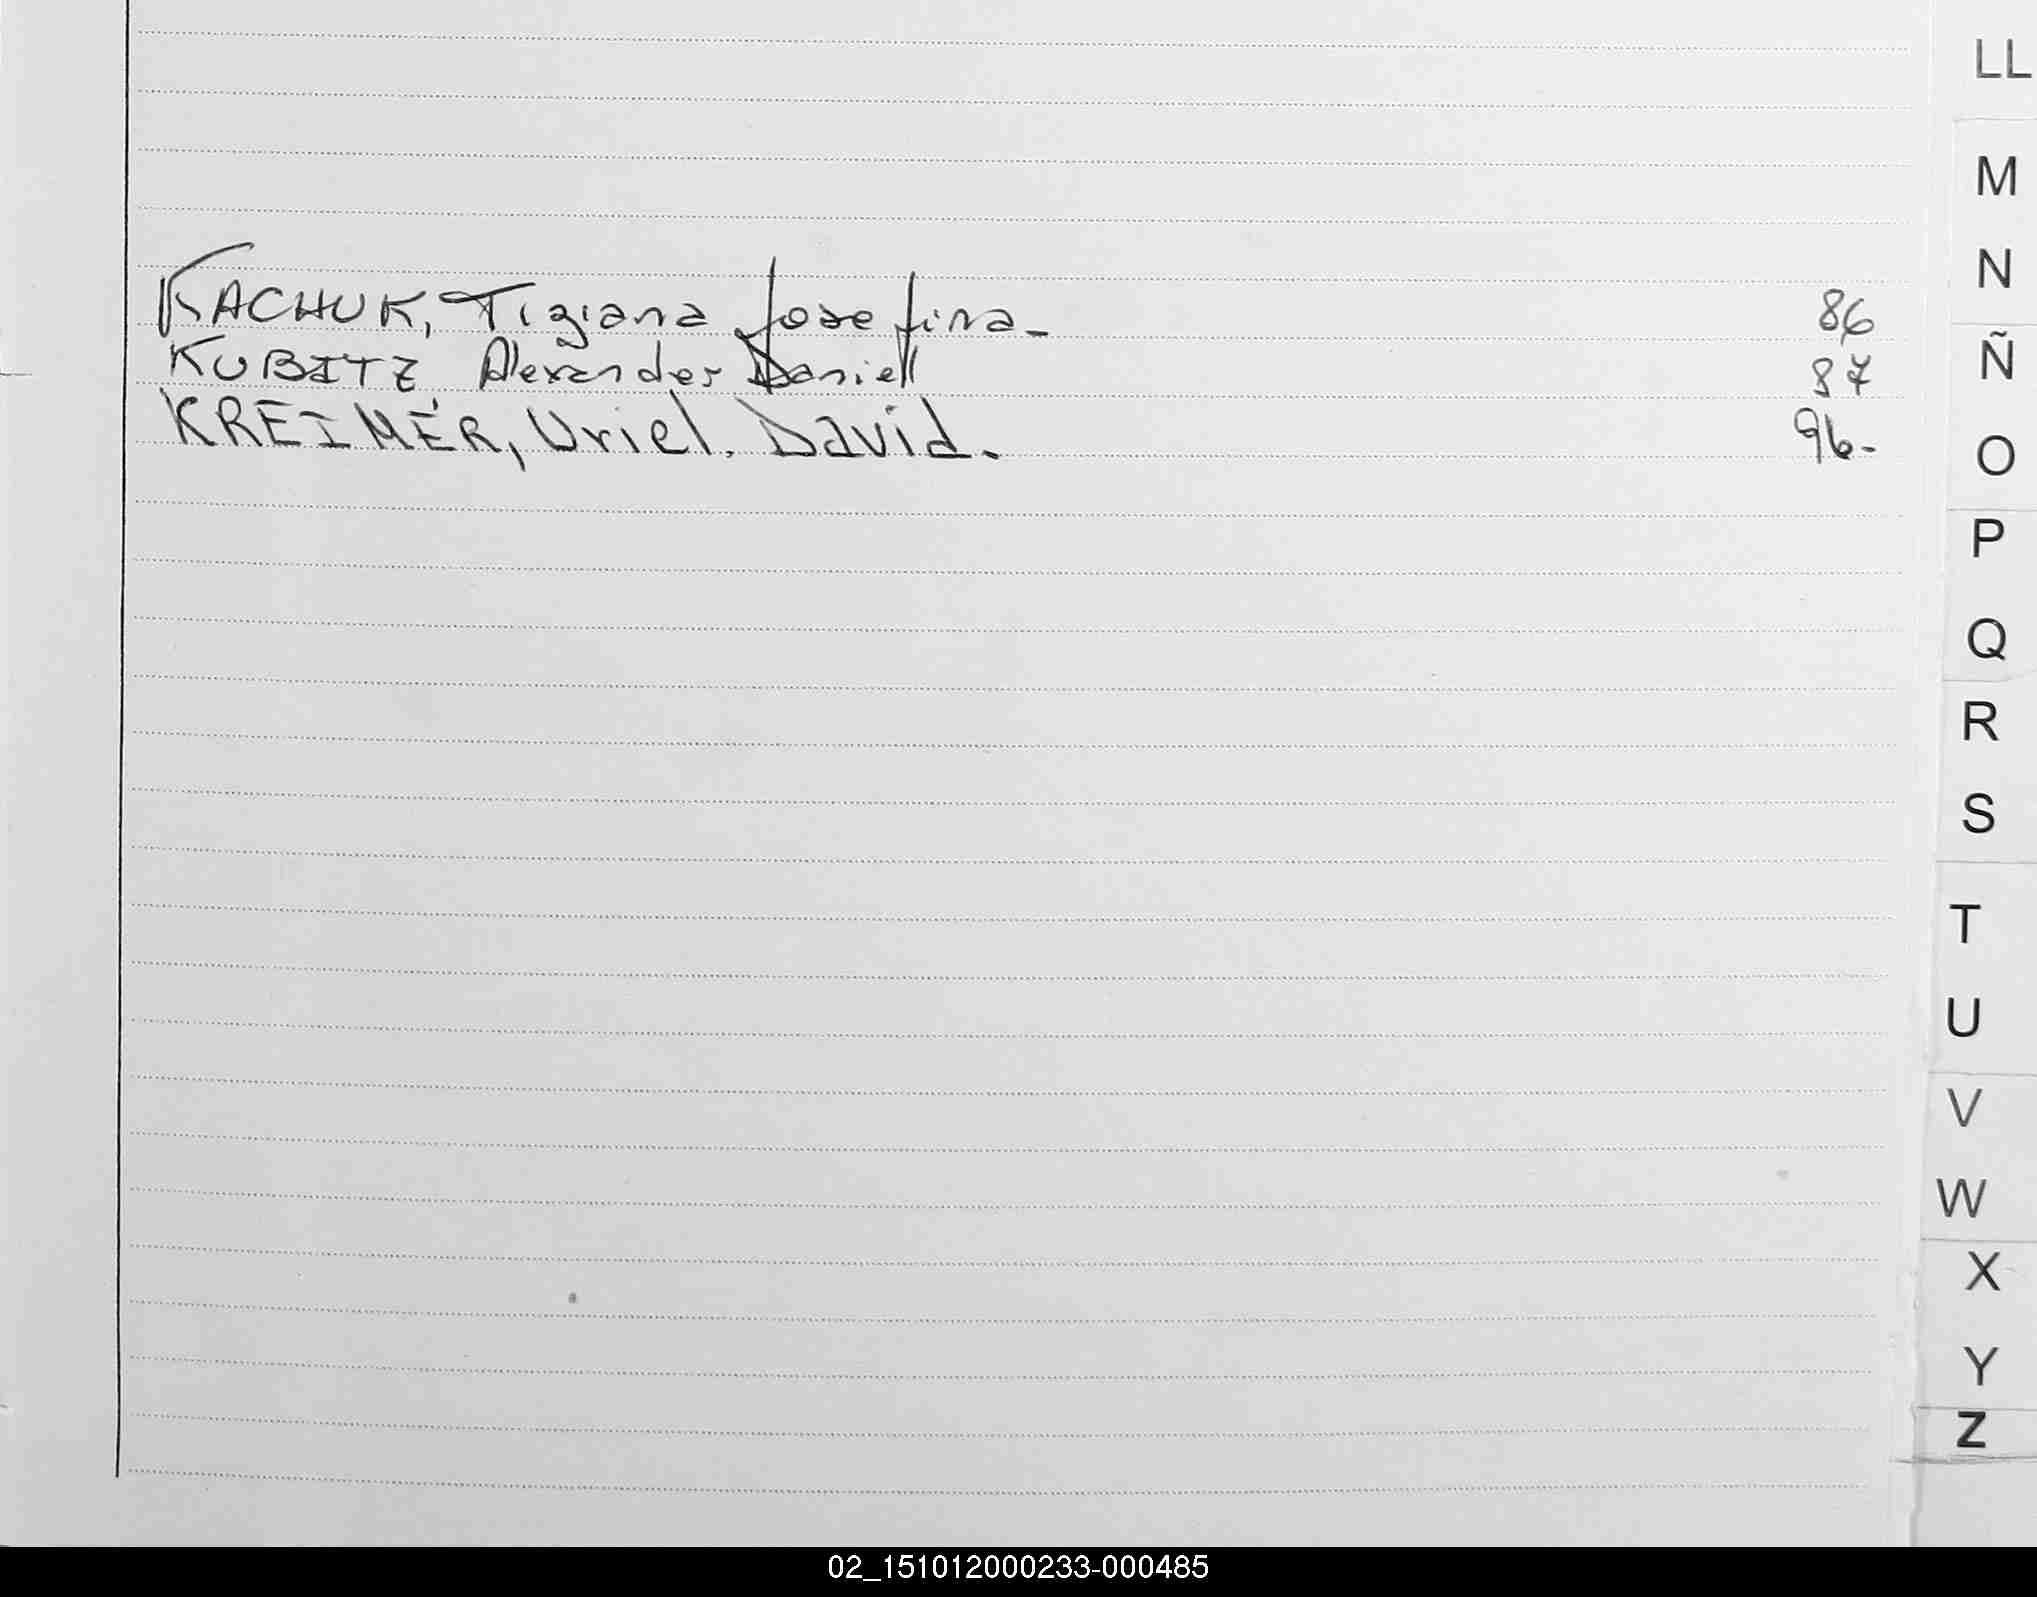 LL
M
N
KACHUK, Tiziana Josefina- 86
Ñ
KUBITZ Alexander Daniell 87
KREIMER, Uriel. David. 96-
O
P
Q
R
S
T
U
V
W
X
Y
Z
02_151012000233-000485